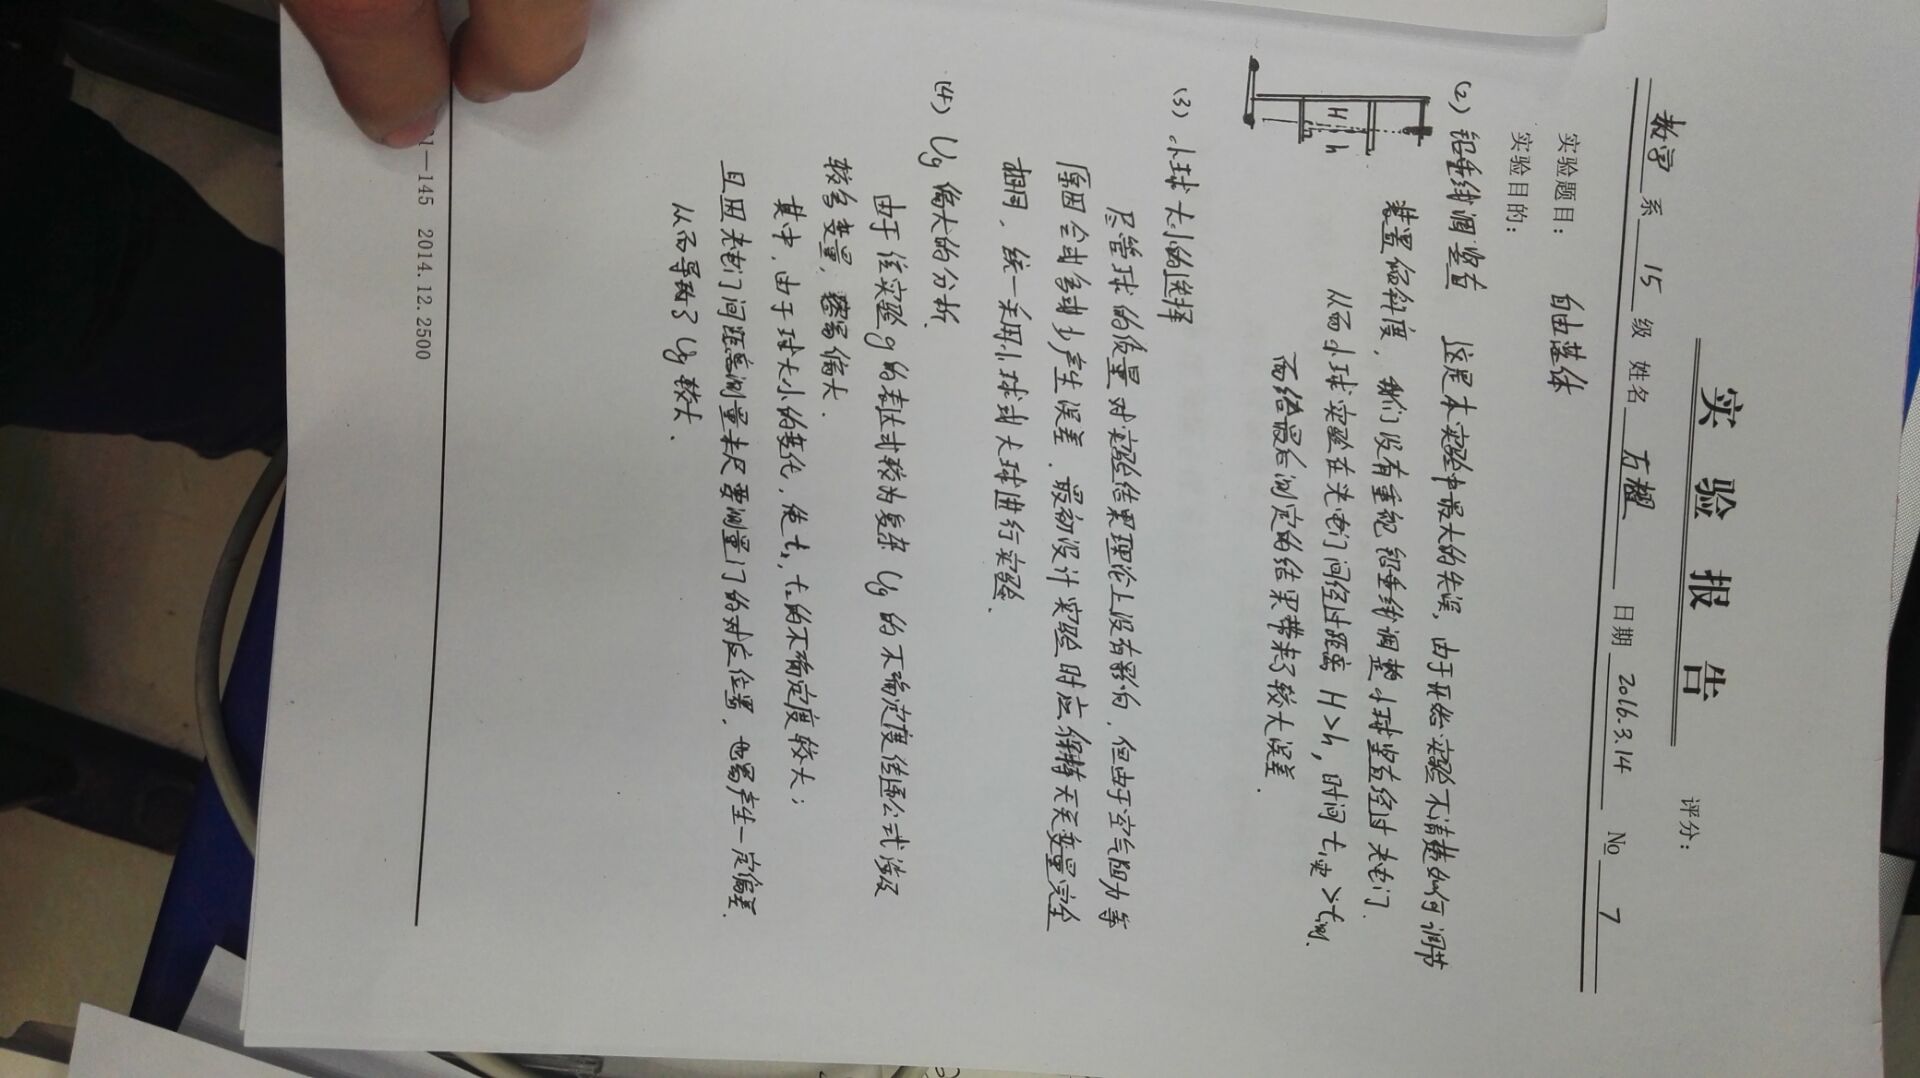 实 验 报 告
评分：
数学 系 15 级 姓名 方樾 日期 2016.3.14 No 7
实验题目： 自由落体
实验目的：
(2) 铅垂线调竖直 这是本实验中最大的失误，由于开始实验不清楚如何调节
装置倾斜度，我们没有重视铅垂线调整小球竖直经过光电门．
从而小球实验在光电门间经过距离 H>h，时间 t实>t测．
而给最后测定的结果带来了较大误差．
H
h
(3) 小球大小的选择
尽管球的质量对实验结果理论上没有影响，但由于空气阻力等
原因会或多或少产生误差．最初设计实验时应保持无关变量完全
相同，统一采用小球或大球进行实验．
(4) Ug 偏大的分析．
由于该实验 g 的表达式较为复杂 Ug 的不确定度传递公式涉及
较多变量，容易偏大．
其中，由于球大小的变化，使 t₁，t₂的不确定度较大；
且因光电门间距离测量米尺要测量门的对应位置，也易产生一定偏差．
从而导致了 Ug 较大．
1—145 2014.12.2500